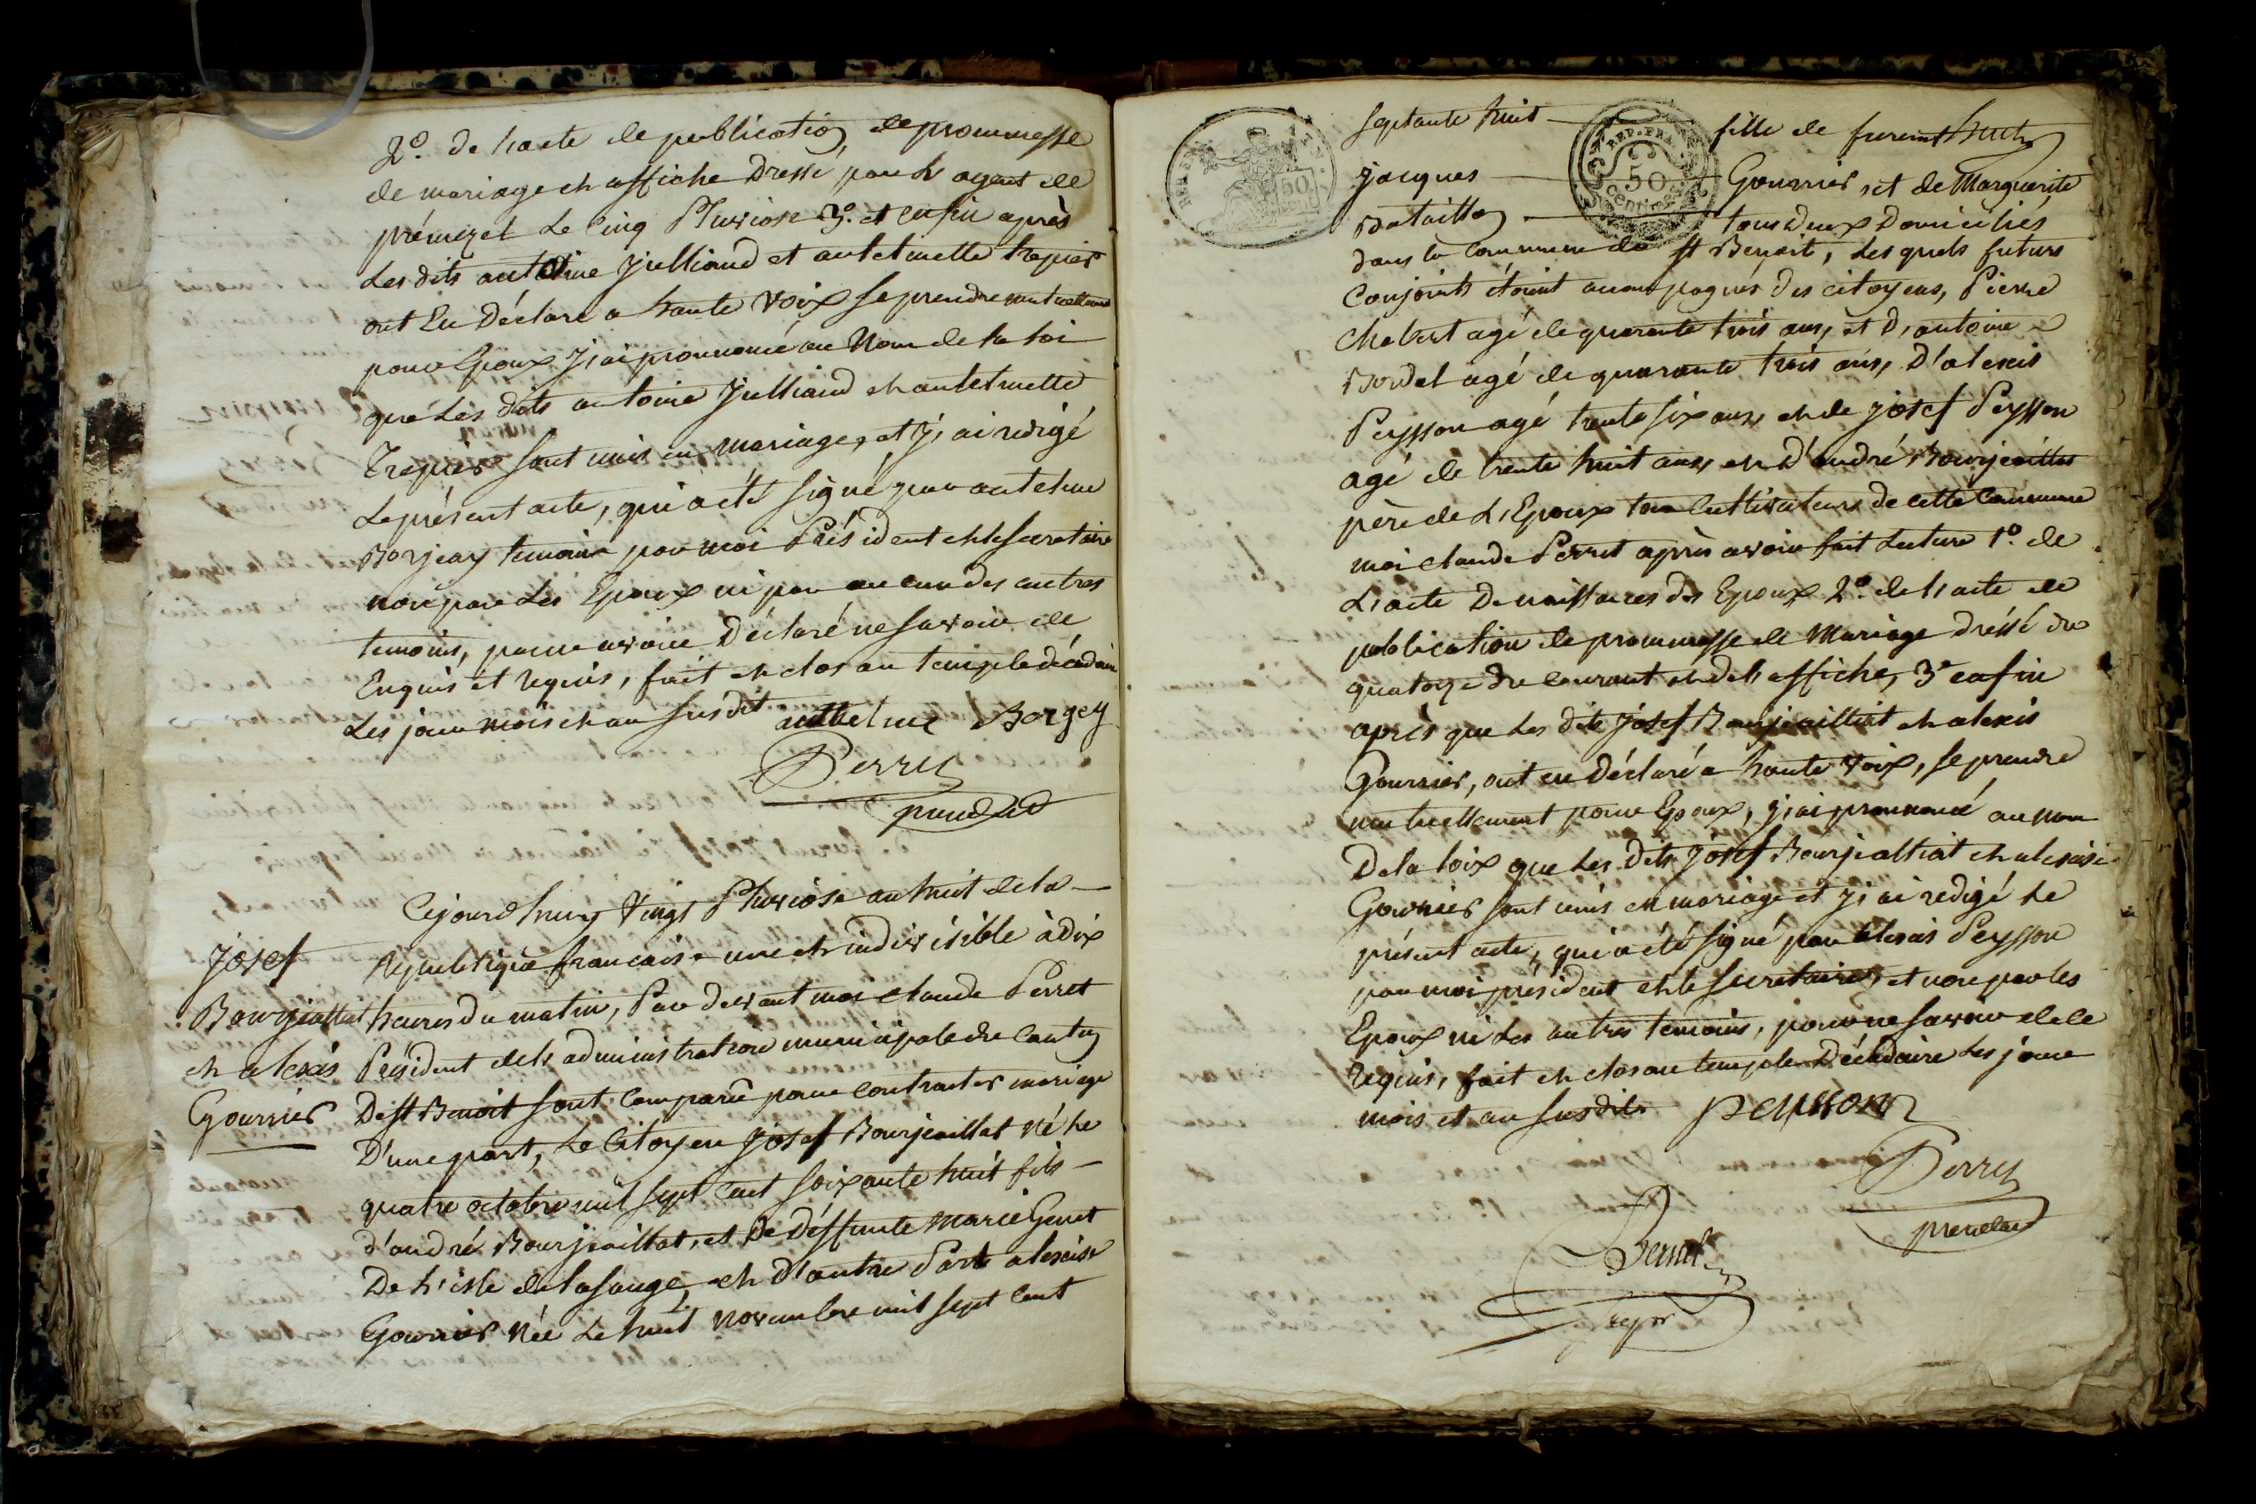 2.º de l'acte de publication de prommesse
de mariage et affiche dressé par l'agent de
prémezel le cinq Pluviose 3.º et enfin après
les dits anthelme Julliand et anthelmette trepier
ont eu déclaré a haute voix se prendre mutuellement
pour Epoux j'ai prononcé au Nom de la loi
que les dits antoine Julliand et anthelmette
Trepier sont unis en mariage, et j'ai redigé
le présent acte, qui a été signé par anthelme
Borjey temoin par moi Président et le secretaire
non par les Epoux ni par aucun des autres
temoins, pour avoir déclaré ne savoir de
Enquis et requis, fait et clos au temple décadaire
les jour mois et an susdit anthelme Borgey
Perret
président
Josef
Bourjaillat
et alexis
Gourrier
Cejourd'huy vingt Pluviose an huit de la
république francaise une et indivisible à dix
heures du matin, Par devant moi claude Perret
Président de l'administration municipale du canton
De st Benoit sont comparu pour contracter mariage
D'une part, le Citoyen Josef Bourjaillat né le
quatre octobre mil sept cent soixante huit fils
d'andré Bourjaillat, et de déffunte Marie Genet
De l'isle de la sauge, et d'autre Part alexise
Gourrier née le huit novembre mil sept cent
septante huit fille de furent huit
jacques Gourrier, et de Marguerite
Bataillon tous deux domiciliés
REP. FRA.
50
50
Centimes
dans la commune de st Benoit, les quels futurs
conjoints étoient accompagnés des citoyens, Pierre
chabert agé de quarante trois ans, et d'antoine
Bordel agé de quarante trois ans, D'alexis
Peysson agé trente six ans, et de josef Peysson
agé de trente huit ans, et d'andré Bourjaillat
père de l'Epoux tous Cultivateurs de cette commune
moi claude Perret après avoir fait lecture 1.º de
l'acte de naissances des Epoux 2.º de l'acte de
publication de prommesse de Mariage dréssé du
quatorze du courant et de l'affiche, 3º enfin
après que les dits josef Bourjaillat et alexis
Gourrier, ont eu déclaré a haute voix, se prendre
mutuellement pour Epoux, j'ai prononcé au nom
De la loix que les dits josef Bourjaillat et alexise
Gourrier sont unis en mariage et j'ai redigé le
présent acte, qui a été signé par alexis Peysson
par moi président et le secretaire, et non par les
Epoux ni les autres temoins, pour ne savoir de ce
requis, fait et clos au temple Décadaire les jour
mois et an susdits Peysson
Perret
président